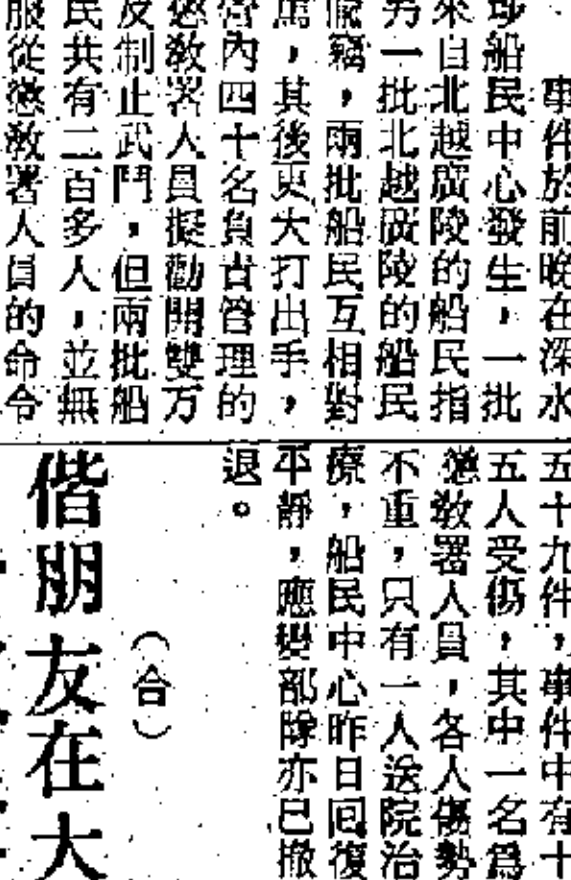 事件於前晚在深水
埗船民中心發生，一批
來自北越廣陵的船民指
另一批北越廣陵的船民
偷竊，兩批船民互相對
罵，其後更大打出手，
營內四十名負責管理的
懲敎署人員擬勸開雙方
及制止武鬥，但兩批船
民共有二百多人，並無
服從懲敎署人員的命令
五十九件，事件中有十
五人受傷，其中一名爲
懲敎署人員，各人傷勢
不重，只有一人送院治
療，船民中心昨日回復
平靜，應變部隊亦已撤
退。
（合）
偕朋友在大